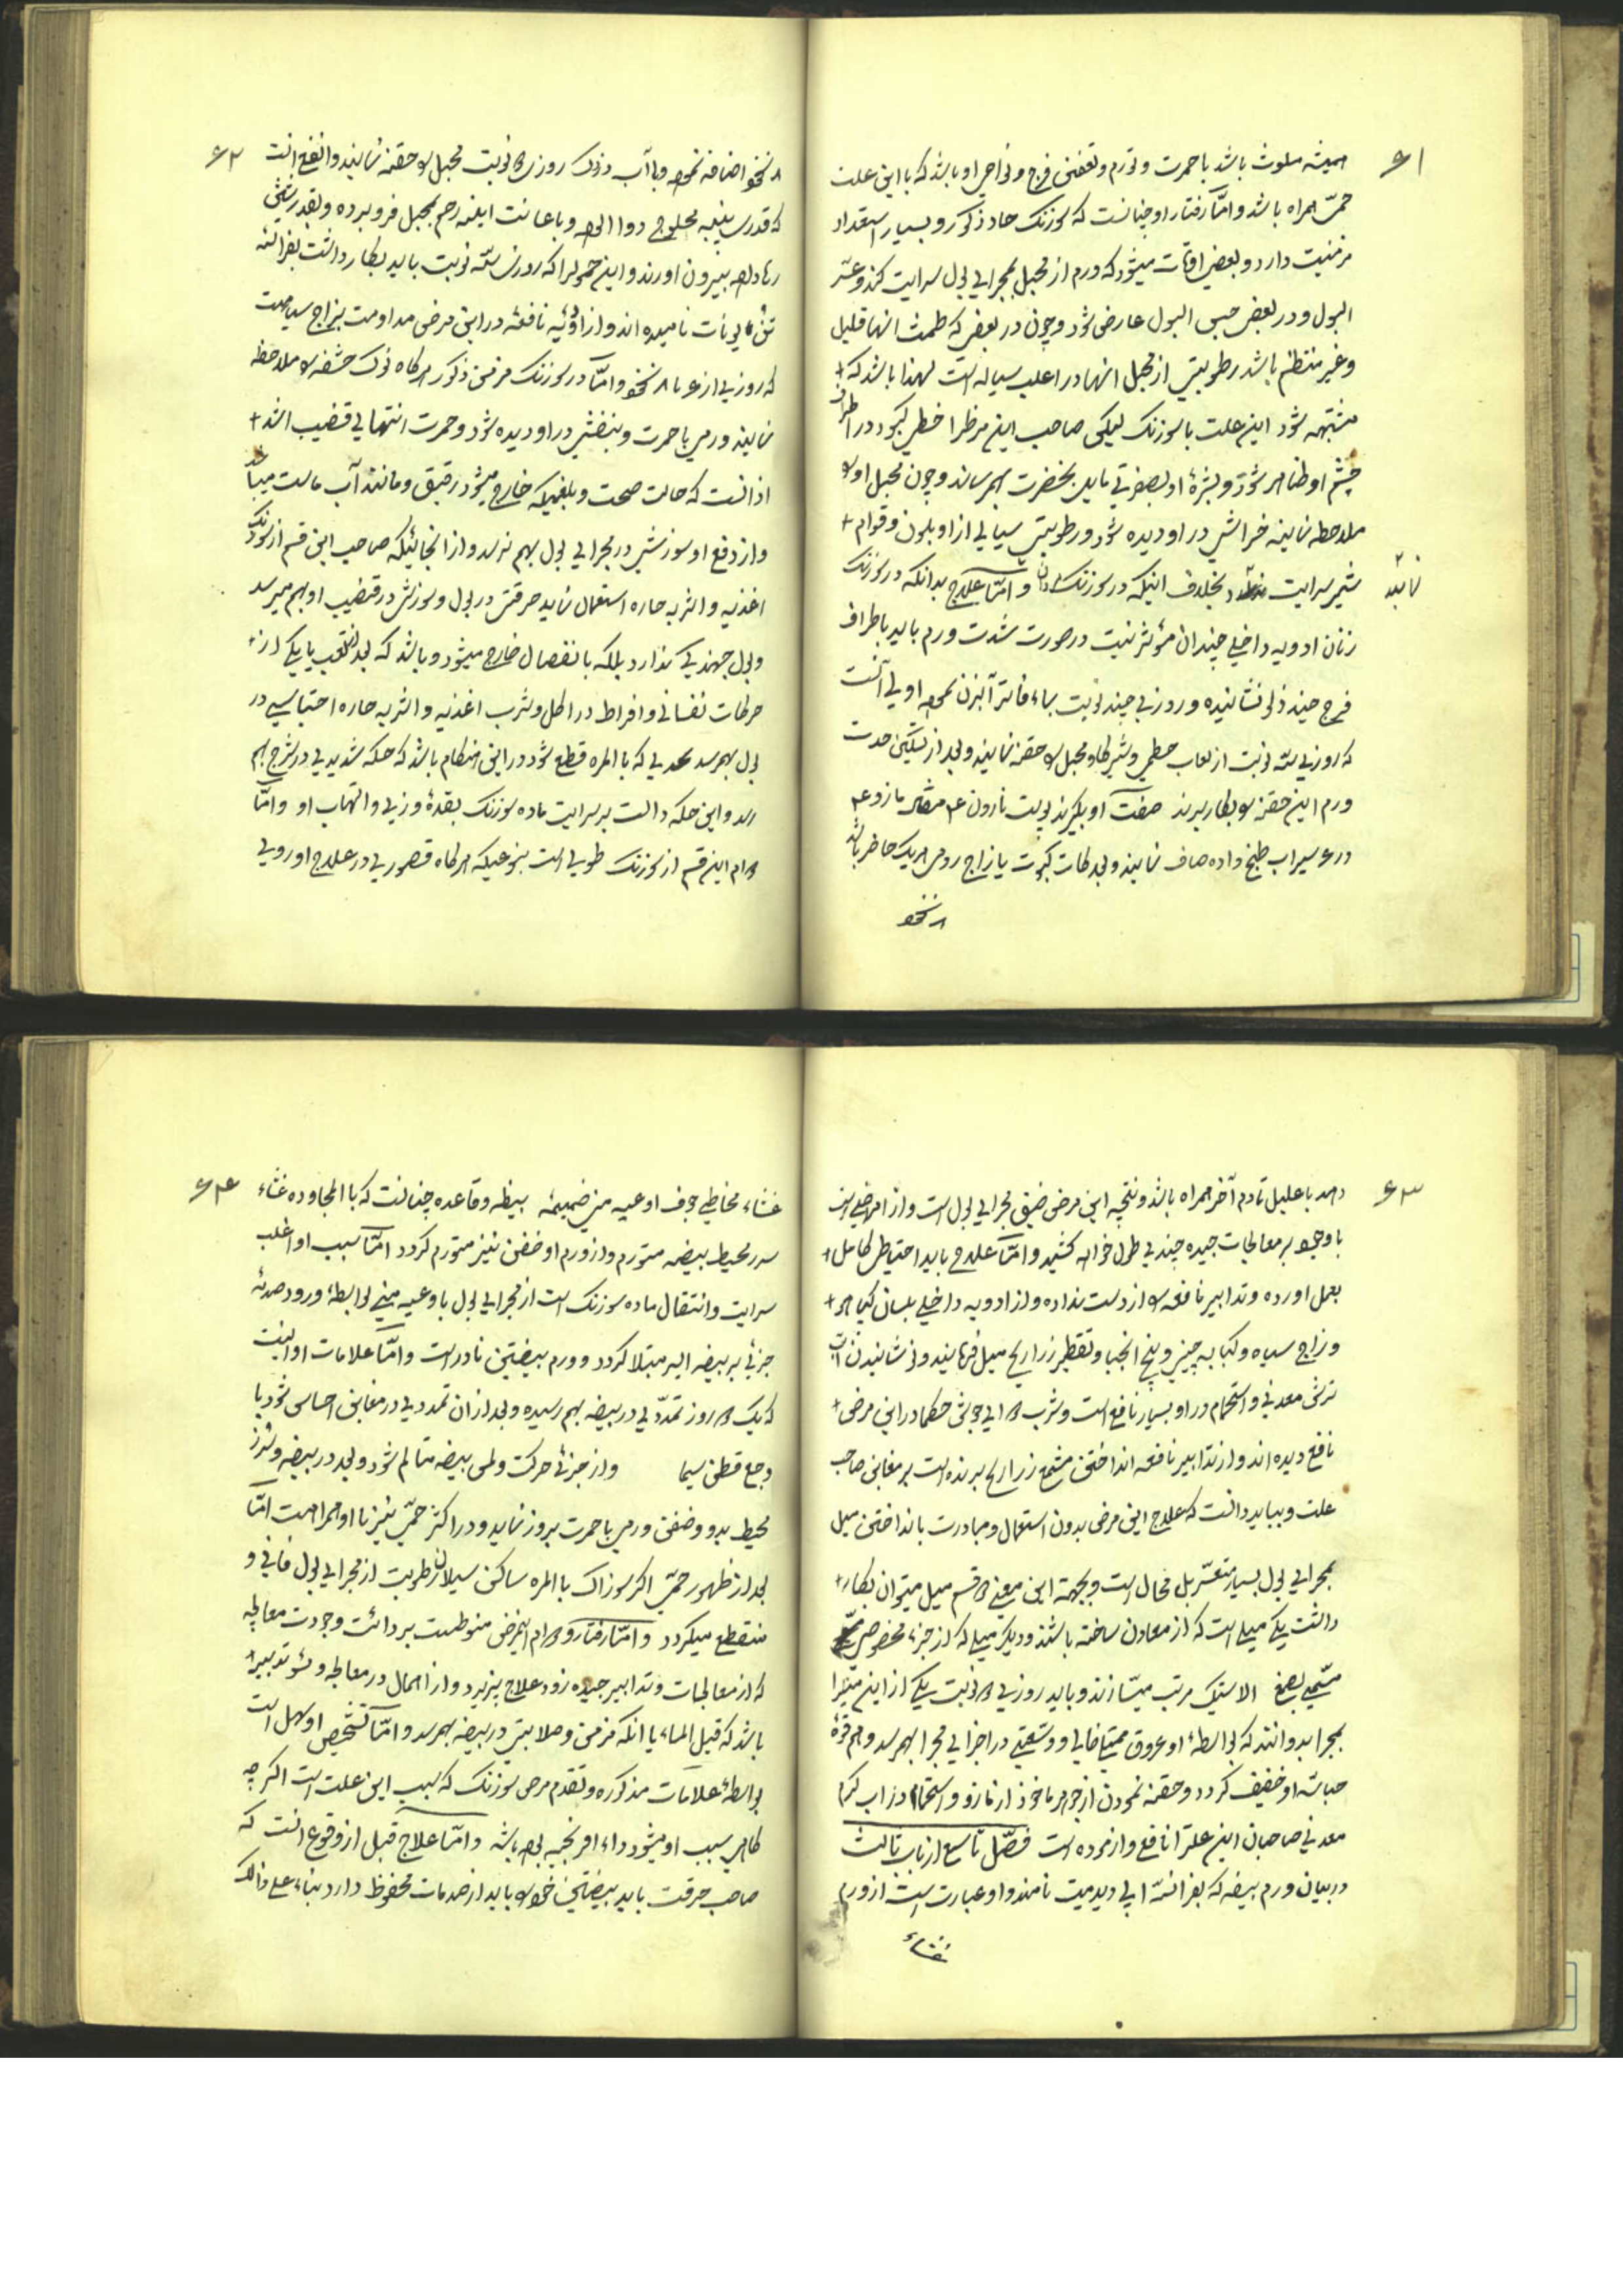 ۶۱
همیشه ملوث باشد با حمرت و تورم و تعفنی فرج و نواحی او باشد که با این علت
حمی همراه باشد و امّا رفتار او چنانست که سوزنک حاد ذکور و بسیار استعداد
مزمنیت دارد و بعض اوقات میشود که ورم از مهبل بمجرای بول سرایت کند و عسر
البول و در بعض حبس البول عارض شود و چون در بعض که طمث انها قلیل
و غیر منتظم باشد رطوبتی از مهبل انها در اغلب سیاله است لهذا باشد که
مشتبه شود این علت با سوزنک لیکن صاحب این مرض را خطی کبود در اطراف
چشم او ظاهر شود و بشرهٔ او بصفرتی مایل بخضرت بهم رساند و چون مهبل او را
ملاحظه نمایند خراشی در او دیده شود و رطوبتی سیالی از او بلون و قوام
شیر سرایت نماید بخلاف اینکه در سوزنک و امّا علاج بدانکه در سوزنک
زنان ادویه داخلی چندان مؤثر نیست در صورت شدت ورم باید باطراف
فرج چند زلو نشانیده و روزی چند نوبت بماء فاتر آبزن نمود اولی آنست
که روزی سه نوبت از لعاب خطمی و شیر گاو مهبل را حقنه نمایند و بعد از تسکین حدت
ورم این حقنه را بکار برند صفت او بگیرند پوست نارون مازو
در ۶ سیر آب طبخ داده صاف نمایند و بعد کات کبود یا زاج روی هر یک حاضر باشد
۸ نخود
۶۲
۸ نخود اضافه نموده و با آب دزدک روزی نوبت مهبل را حقنه نمایند و انفع انست
که قدری پنبه محلوج دوا الوده و باعانت اینه رحم بمهبل فرو برده و بقدر
بیرون اورند و این حمول را که روزی سه نوبت باید بکار داشت بفرانسه
نامیده اند و از ادویه نافعه در این مرض مداومت بزاج سیاهست
که روزی از ۶ تا ۸ نخود و امّا در سوزنک مزمن ذکور هرگاه نوک حشفه را ملاحظه
نمایند ورمی با حمرت و بنفشی در او دیده شود و حمرت انتهای قضیب اشد
از انست که حالت صحت و بلغمیکه خارج میشود رقیق و مانند آب ماست میباشد
و از دفع او سوزشی در مجرای بول بهم نرسد و از انجائیکه صاحب این قسم از سوزنک
اغذیه و اشربه حاره استعمال نماید حرقتی در بول و سوزش در قضیب او بهم میرسد
و بول جهندگی ندارد بلکه بانفصال خارج میشود و باشد که بعد از تعب یا یکی از
حرکات نفسانی و افراط در اکل و شرب اغذیه و اشربه حاره احتباسی در
بول بهم رسد بحدی که بالمره قطع شود در این هنگام باشد که حکه شدیدی در شرج بهم
رسد و این حکه دالست بر سرایت ماده سوزنک بغدهٔ وزی و التهاب او و امّا
دوام این قسم از سوزنک طویل است بنوعیکه هرگاه قصوری در علاج او روی
۶۳
دهد با علیل تا دم آخر همراه باشد و نتیجه این مرض ضیق مجرای بول است و از امراضی است
با وجود بر معالجات جیده چندی طول خواهد کشید و امّا علاج باید احتیاط کامل
بعمل اورده و تدابیر نافعه را از دست نداده و از ادویه داخلی بلسان کپاهو
و زاج سیاه و کبابه چینی و بنج انجبا و تقطیر زراریح میل فرمایند و نشانیدن در آب
ترش معدنی و استحمام در او بسیار نافع است و شرب چوبی حکما در این مرض
نافع دیده اند و از تدابیر نافعه انداختن مشمع زراریح برنده است بر مغابن صاحب
علت و بباید دانست که علاج این مرض بدون استعمال و مبادرت بانداختن میل
بمجرای بول بسیار متعسّر بل محال است و بجهته این معنی دو قسم میل میتوان بکار
داشت یکی میلی است که از معادن ساخته باشند و دیگر میلی که از جزء مخصوص
مسمی بصمغ الاستیک مرتب میسازند و باید روزی دو نوبت یکی از این میلها را
بمجرا بدوانند که بواسطهٔ او عروق ممتلی خالی و وسعتی در اجزای مجرا بهم رسد و هم قوهٔ
حساسه او خفیف گردد و حقنه نمودن از جوهر ماخوذ از مازو و استحمام در اب گرم
معدنی صاحبان این علت را نافع و ازموده است فصل تاسع از باب ثالث
در بیان ورم بیضه که بفرانسه اپی دیدمیت نامند و او عبارت است از ورم
غشاء
۶۴
غشاء مخاطی جوف اوعیه منی ضمیمه بیضه و قاعده چنانست که بالمجاوره غشاء
سررمحیط بیضه متورم و از ورم او خفن نیز متورم گردد امّا سبب او اغلب
سرایت و انتقال ماده سوزنک است از مجرای بول باوعیه منی بواسطهٔ ورود صدمهٔ
جزئی بر بیضه ایسر مبتلا گردد و ورم بیضتین نادر است و امّا علامات او انست
که یک دو روز تمددی در بیضه بهم رسیده و بعد از ان تمددی در مغابن احساس شود با
وجع قطن سیما و از جزئی حرکت و لمس بیضه متالم شود و بعد در بیضه و
محیط بدو و خفن ورمی با حمرت بروز نماید و در اکثر حمی نیز با او همراهست امّا
بعد از ظهور حمی اکثر سوزاک بالمره ساکن سیلان رطوبت از مجرای بول فانی و
منقطع میگردد و امّا رفتار و دوام این مرض منوط است بردائت و جودت معالجه
که از معالجات و تدابیر جیده زود علاج پذیرد و از اهمال در معالجه و سوء تدبیر
باشد که قیل الماء یا انکه مزمن و صلابتی در بیضه بهم رسد و امّا تشخیص او سهل است
بواسطهٔ علامات مذکوره و تقدم مرض سوزنک که سبب این علت است اگر چه
گاهی سبب او میشود داء افرنجیه بوده باشد و امّا علاج قبل از وقوع انست که
صاحب حرقت باید بیضتین خود را باید از صدمات محفوظ دارد بناء علی ذالک